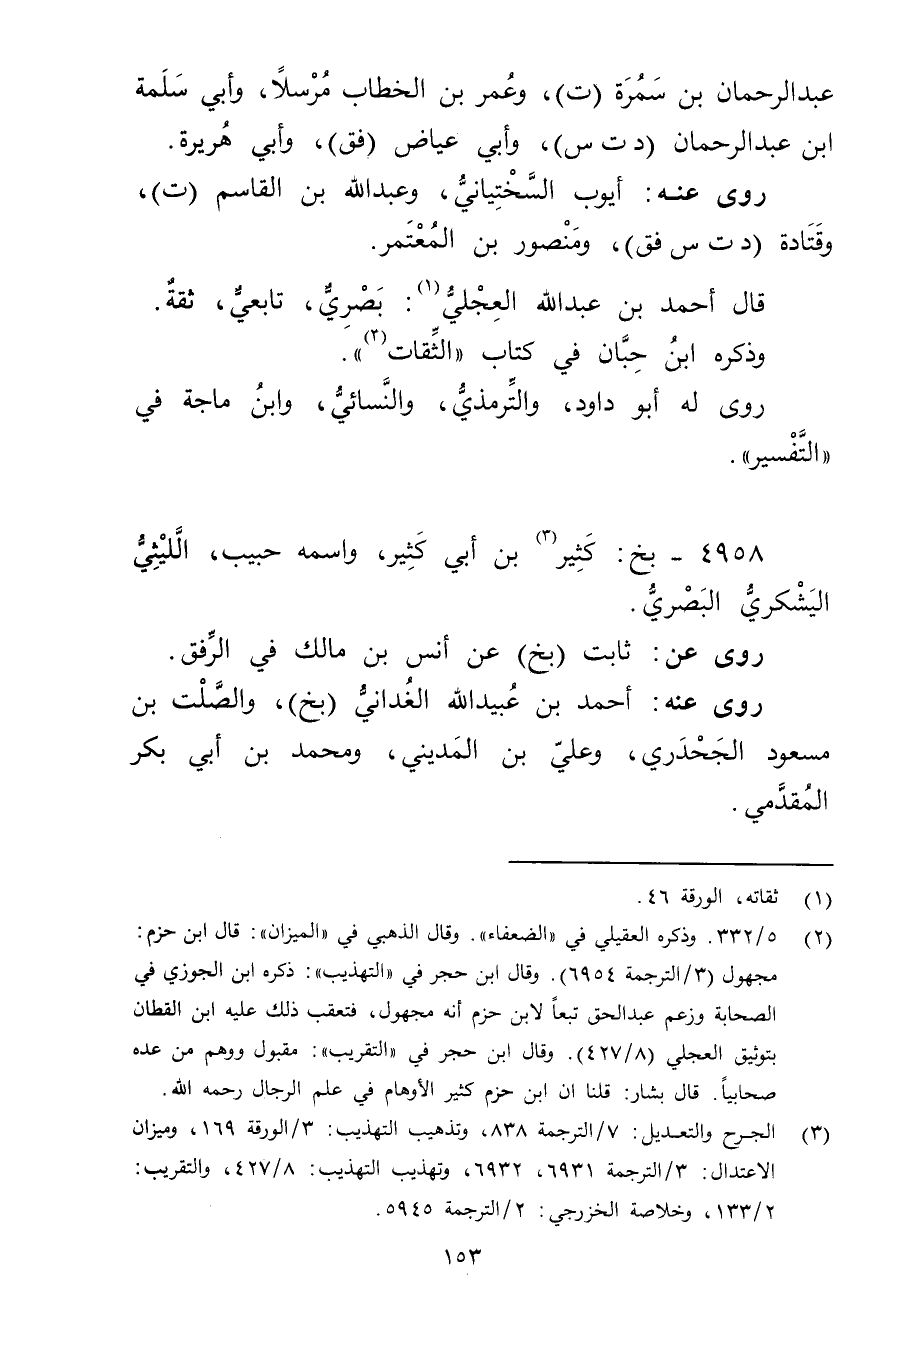 عبدالرحمان بن سَمُرَة (ت)، وعُمر بن الخطاب مُرْسلاً، وأبي سَلَمة
ابن عبدالرحمان (د ت س)، وأبي عياض (فق)، وأبي هُريرة.
روى عنه: أيوب السَّخْتِيانيُّ، وعبدالله بن القاسم (ت)،
وقَتَادة (د ت س فق)، ومَنْصور بن المُعْتَمر.
قال أحمد بن عبدالله العِجْليُّ(١): بَصْرِيٌّ، تابعيٌّ، ثقةٌ.
وذكره ابنُ حِبَّان في كتاب «الثِّقات(٢)».
روى له أبو داود، والتِّرمذيُّ، والنَّسائيُّ، وابنُ ماجة في
«التَّفْسير».
٤٩٥٨ - بخ: كَثِير(٣) بن أبي كَثِير، واسمه حبيب، الَّليْثِيُّ
اليَشْكريُّ البَصْريُّ.
روى عن: ثابت (بخ) عن أنس بن مالك في الرِّفق.
روى عنه: أحمد بن عُبيدالله الغُدانيُّ (بخ)، والصَّلْت بن
مسعود الجَحْدَري، وعليّ بن المَديني، ومحمد بن أبي بكر
المُقدَّمي.
(١) ثقاته، الورقة ٤٦.
(٢) ٣٣٢/٥. وذكره العقيلي في «الضعفاء». وقال الذهبي في «الميزان»: قال ابن حزم:
مجهول (٣/الترجمة ٦٩٥٤). وقال ابن حجر في «التهذيب»: ذكره ابن الجوزي في
الصحابة وزعم عبدالحق تبعاً لابن حزم أنه مجهول، فتعقب ذلك عليه ابن القطان
بتوثيق العجلي (٤٢٧/٨). وقال ابن حجر في «التقريب»: مقبول ووهم من عده
صحابياً. قال بشار: قلنا ان ابن حزم كثير الأوهام في علم الرجال رحمه الله.
(٣) الجرح والتعديل: ٧/الترجمة ٨٣٨، وتذهيب التهذيب: ٣/الورقة ١٦٩، وميزان
الاعتدال: ٣/الترجمة ٦٩٣١، ٦٩٣٢، وتهذيب التهذيب: ٤٢٧/٨، والتقريب:
١٣٣/٢، وخلاصة الخزرجي: ٢/الترجمة ٥٩٤٥.
١٥٣